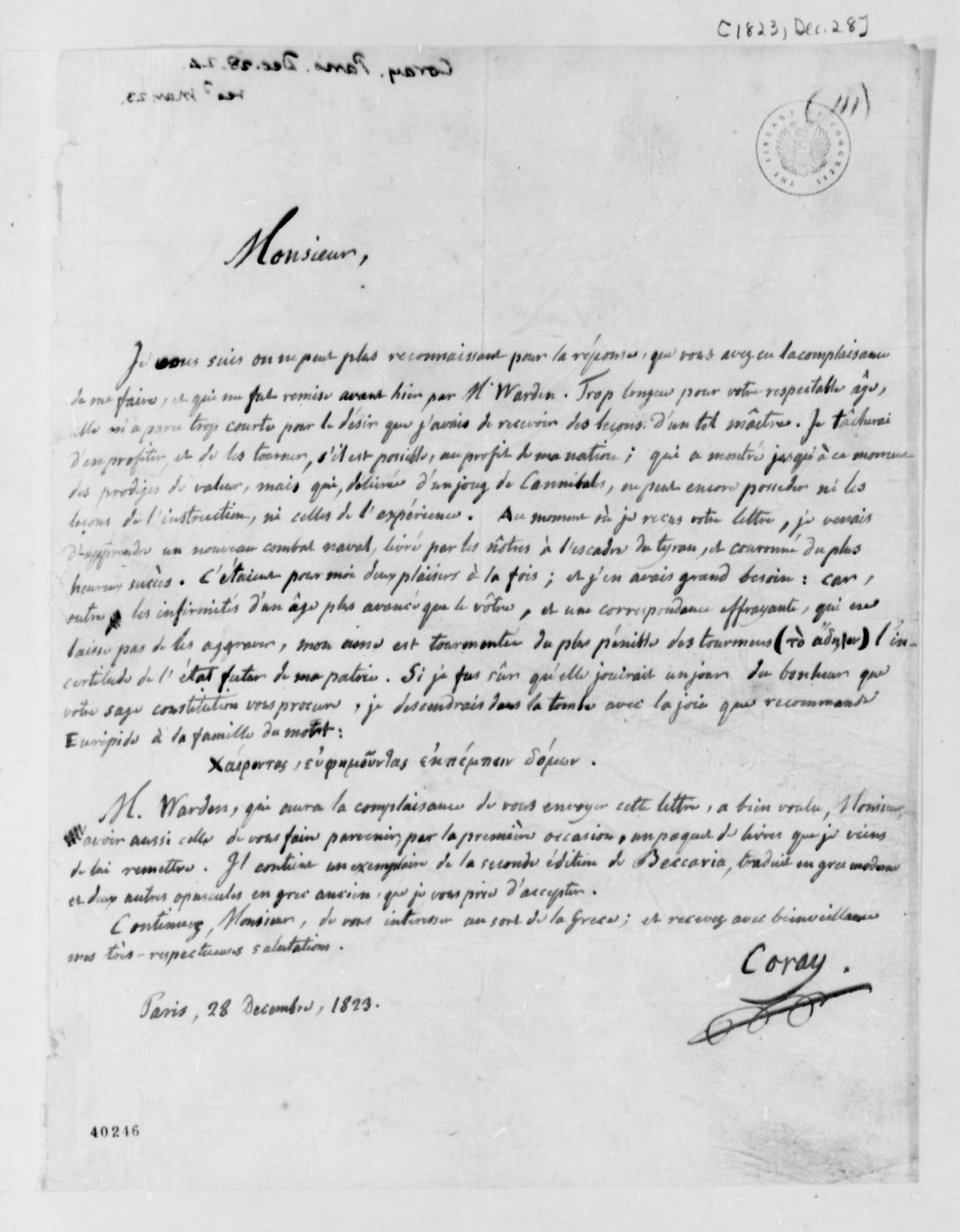 [1823, Dec. 28]
Coray. Paris. Dec. 28. 23
rec.d Mar. 23.
(111)
THE LIBRARY OF CONGRESS
Monsieur,
Je vous suis on ne peut plus reconnaissant pour la réponse, que vous avez eu la complaisance
de me faire, et qui me fut remise avant hier par Mr Warden. Trop longue pour votre respectable âge,
elle m'a paru trop courte pour le désir que j'avais de recevoir des leçons d'un tel mâitre. Je tâcherai
d'en profiter, et de les tourner, s'il est possible, au profit de ma nation; qui a montré jusqu'à ce moment
des prodiges de valeur, mais qui, délivrée d'un joug de Cannibals, ne peut encore posséder ni les
leçons de l'instruction, ni celles de l'expérience. Au moment où je reçus votre lettre, je venais
d'apprendre un nouveau combat naval, livré par les nôtres à l'escadre du tyran, et couronné du plus
heureux succès. C'étaient pour moi deux plaisirs à la fois; et j'en avais grand besoin: car,
outre les infirmités d'un âge plus avancé que le vôtre, et une correspondance effrayante, qui ne
laisse pas de les aggraver, mon ame est tourmentée du plus pénible des tourmens (τὸ ἄδηλον) l'in-
certitude de l'état futur de ma patrie. Si je fus sûr qu'elle jouirait un jour du bonheur que
votre sage constitution vous procure, je descendrais dans la tombe avec la joie que recommande
Euripide à la famille du mort:
Χαίροντας, εὐφημοῦντας ἐκπέμπειν δόμων.
M. Warden, qui aura la complaisance de vous envoyer cette lettre, a bien voulu, Monsieur,
avoir aussi celle de vous faire parvenir, par la première occasion, un paquet de livres que je viens
de lui remettre. Il contient un exemplaire de la seconde édition de Beccaria, traduit en grec moderne
et deux autres opuscules en grec ancien, que je vous prie d'accepter.
Continuez, Monsieur, de vous interesser au sort de la Grece; et recevez avec bienveillance
mes très-respectueuses salutations.
Coray.
Paris, 28 Decembre, 1823.
40246